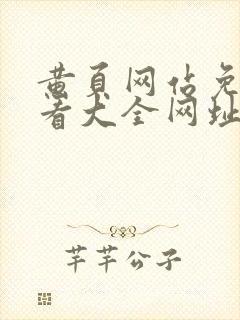 黄页网佔免
看大全网址
芊芊公子